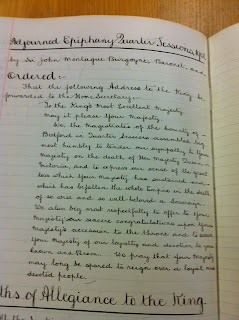 Adjourned Epiphany Quarter Sessions
by Sir John Montague Burgoyne, Baronet, and
Ordered:-
That the following Address to the King be
forwarded to the Home Secretary:-
To the King's Most Excellent Majesty
May it please Your Majesty.
We the Magistrates of the County of
Bedford in Quarter Sessions assembled beg
most humbly to tender our sympathy to Your
Majesty on the death of Her Majesty Queen
Victoria and to express our sense of the great
loss which Your Majesty has sustained and
which has befallen the whole Empire in the death
of so dear and so well-beloved a Sovereign.
We also beg most respectfully to offer to Your
Majesty our sincere congratulations upon Your
Majesty's accession to the throne and to assure
Your Majesty of our loyalty and devotion to your
Crown and Person. We pray that Your Majesty
may long be spared to reign over a loyal and
devoted people.
ths of Allegiance to the King.